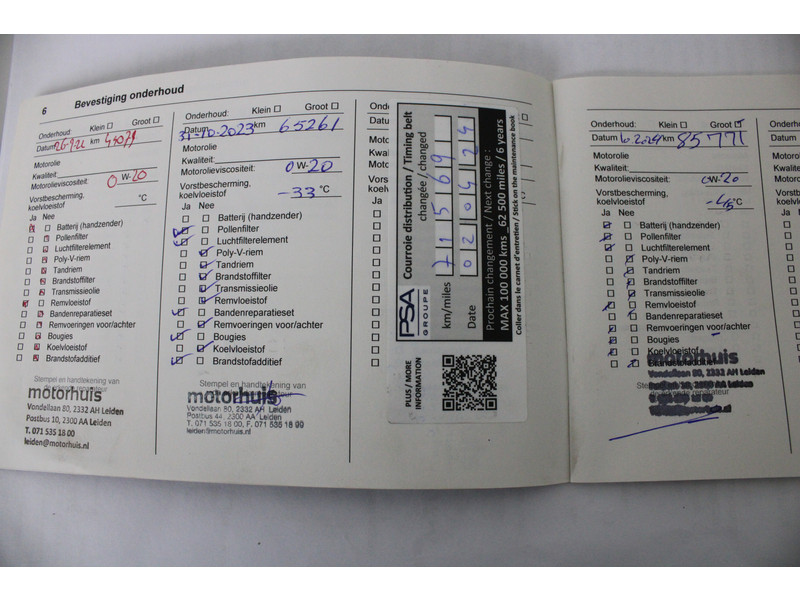 6 Bevestiging onderhoud
Onderhoud: Klein Groot
Datum 26-9-22 km
Motorolie
Kwaliteit:
Motorolieviscositeit: 0 W-20
Vorstbescherming,
koelvloeistof °C
Ja Nee
Batterij (handzender)
Pollenfilter
Luchtfilterelement
Poly-V-riem
Tandriem
Brandstoffilter
Transmissieolie
Remvloeistof
Bandenreparatieset
Remvoeringen voor/achter
Bougies
Koelvloeistof
Brandstofadditief
Stempel en handtekening van
motorhuis
Vondellaan 80, 2332 AH Leiden
Postbus 10, 2300 AA Leiden
T. 071 535 18 00
leiden@motorhuis.nl
Onderhoud: Klein Groot
Datum 31-10-2023 km 65261
Motorolie
Kwaliteit:
Motorolieviscositeit: 0 W-20
Vorstbescherming,
koelvloeistof -33 °C
Ja Nee
Batterij (handzender)
Pollenfilter
Luchtfilterelement
Poly-V-riem
Tandriem
Brandstoffilter
Transmissieolie
Remvloeistof
Bandenreparatieset
Remvoeringen voor/achter
Bougies
Koelvloeistof
Brandstofadditief
Stempel en handtekening van
motorhuis
Vondellaan 80, 2332 AH Leiden
Postbus 44, 2300 AA Leiden
T. 071 535 18 00, F. 071 535 18 90
leiden@motorhuis.nl
Ja
PSA
GROUPE
Courroie distribution / Timing belt
changée / changed
km/miles 71569
Date 02 04 24
Prochain changement / Next change :
MAX 100 000 kms_62 500 miles / 6 years
Coller dans le carnet d'entretien / Stick on the maintenance book
PLUS / MORE
INFORMATION
Onderhoud: Klein Groot
Datum km 85771
Motorolie
Kwaliteit:
Motorolieviscositeit: 0W-20
Vorstbescherming,
koelvloeistof °C
Ja Nee
Batterij (handzender)
Pollenfilter
Luchtfilterelement
Poly-V-riem
Tandriem
Brandstoffilter
Transmissieolie
Remvloeistof
Bandenreparatieset
Remvoeringen voor/achter
Bougies
Koelvloeistof
motorhuis
Vondellaan 80, 2332 AH Leiden